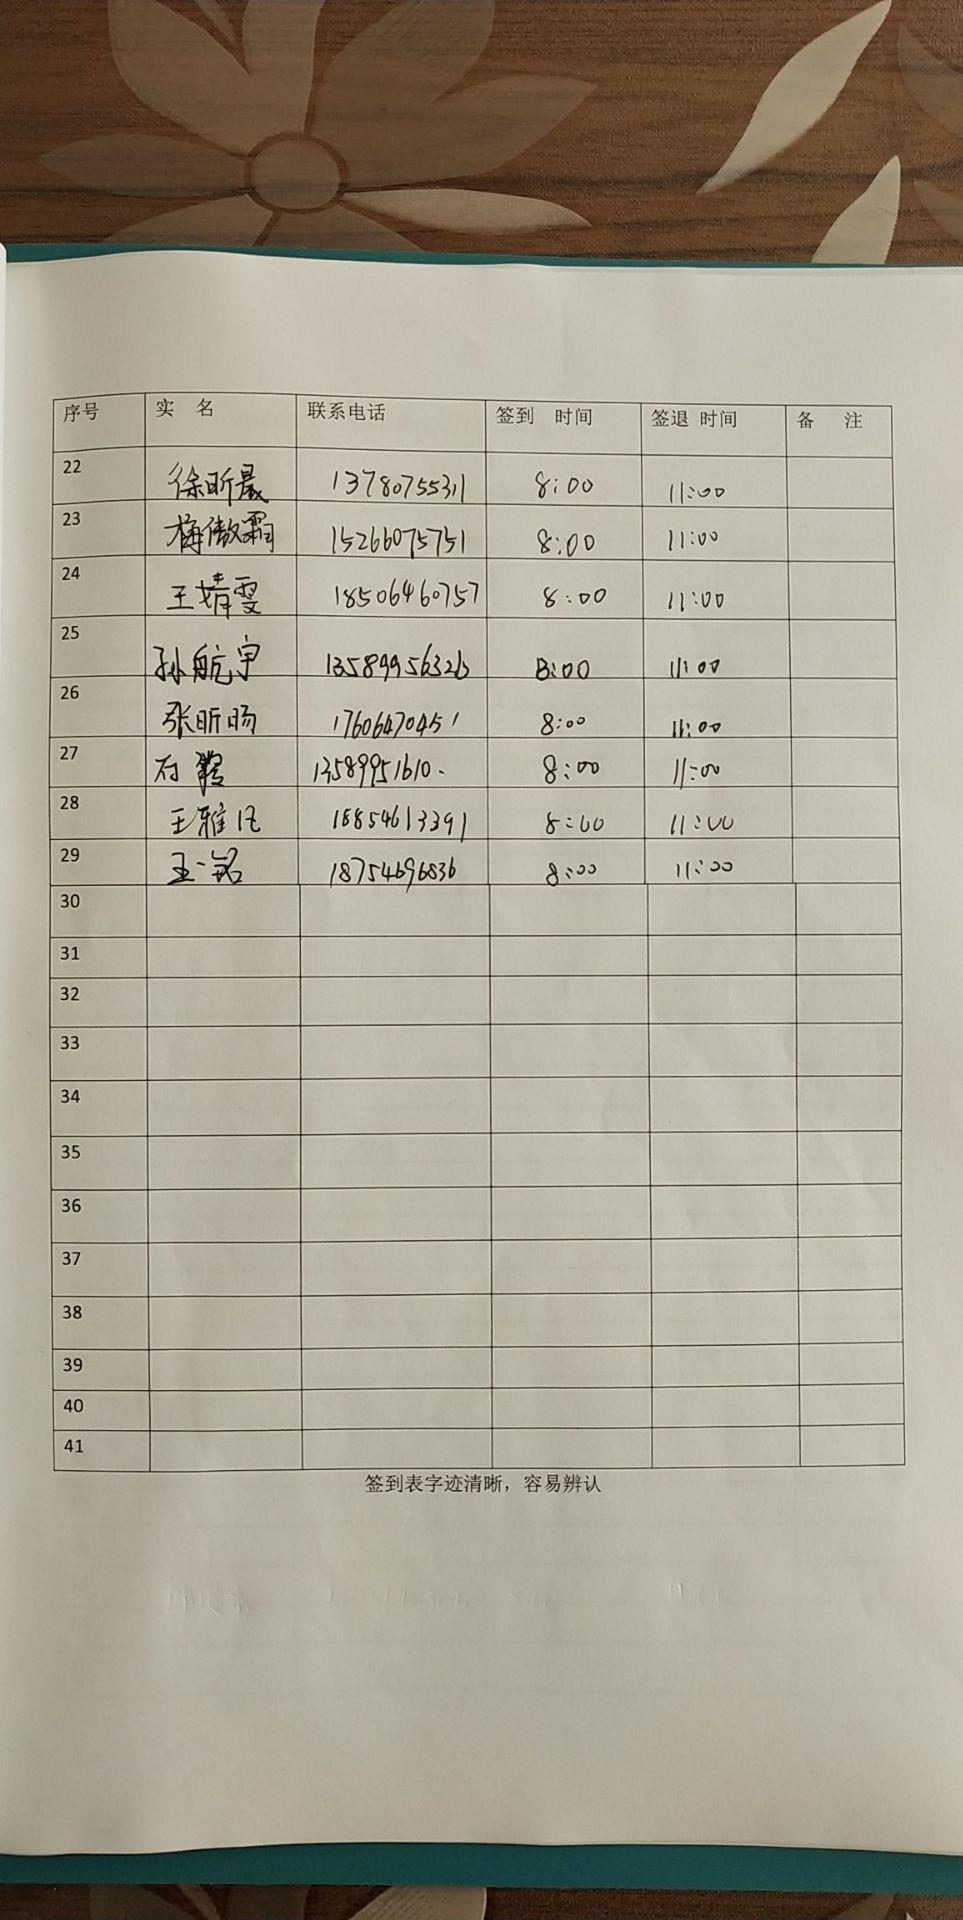 序号 实 名 联系电话 签到 时间 签退 时间 备 注
22 徐昕晨 13780755311 8:00 11:00
23 梅傲霜 15266075751 8:00 11:00
24 王婧雯 18506460757 8:00 11:00
25 孙航宇 8:00 11:00
26 张昕旸 17606470451 8:00 11:00
27 石 13589951610. 8:00 11:00
28 王雅 18854613391 8:00 11:00
29 王一铭 18754696836 8:00 11:00
30
31
32
33
34
35
36
37
38
39
40
41
签到表字迹清晰，容易辨认